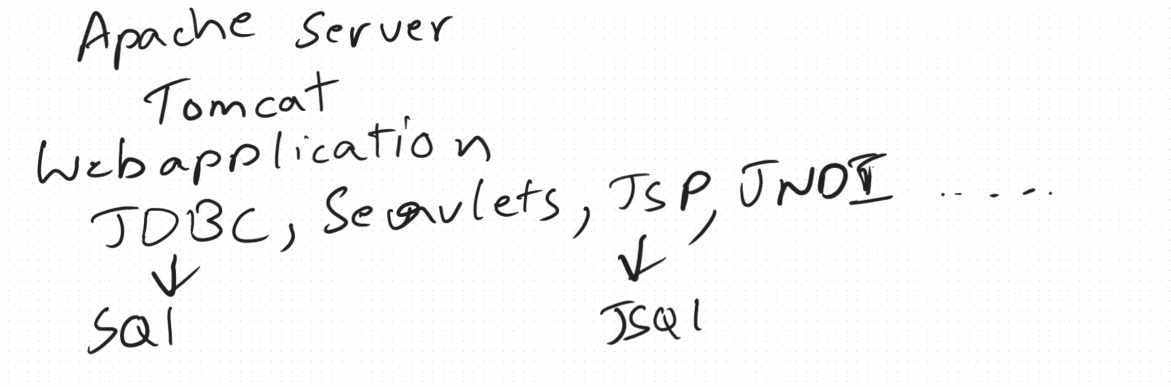 Apache Server
Tomcat
Webapplication
JDBC, Servlets, JSP, JNDI .....
↓ ↓
SQl JSQl